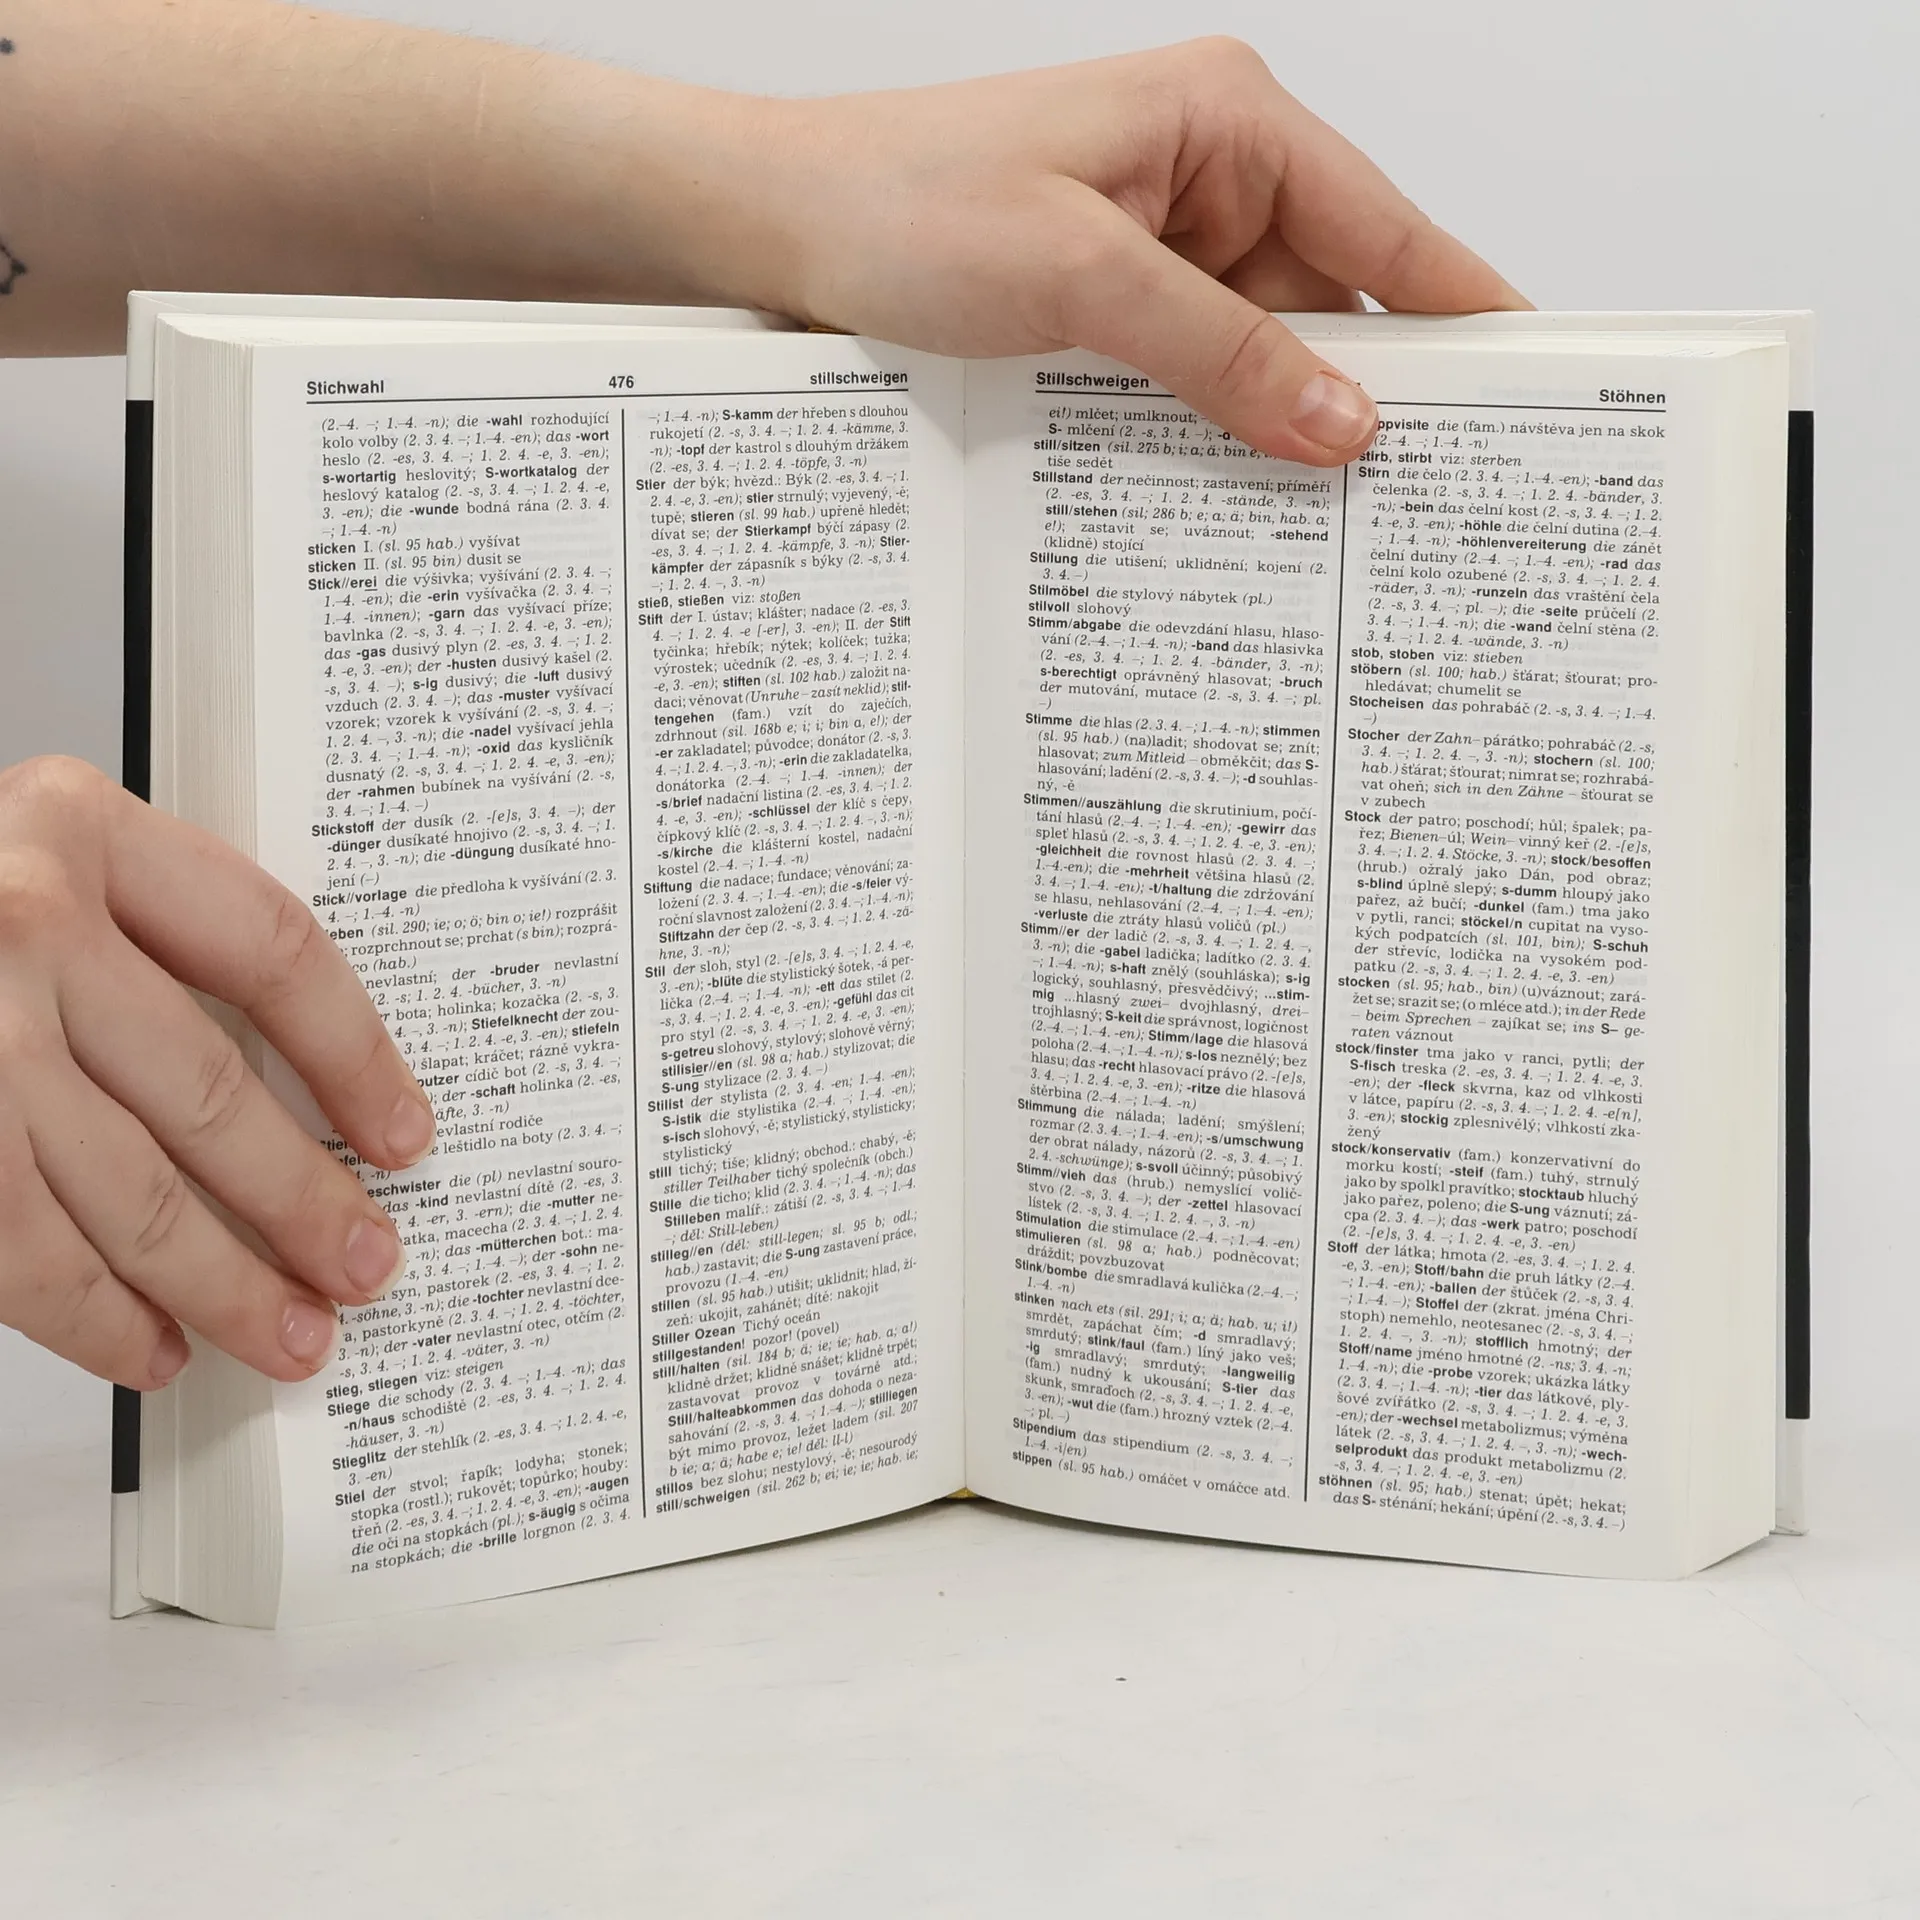 Stichwahl 476 stillschweigen
(2.–4. –; 1.–4. -n); die -wahl rozhodující
kolo volby (2. 3. 4. –; 1.–4. -en); das -wort
heslo (2. -es, 3. 4. –; 1. 2. 4. -e, 3. -en);
s-wortartig heslovitý; S-wortkatalog der
heslový katalog (2. -s, 3. 4. –; 1. 2. 4. -e,
3. -en); die -wunde bodná rána (2. 3. 4.
–; 1.–4. -n)
sticken I. (sl. 95 hab.) vyšívat
sticken II. (sl. 95 bin) dusit se
Stick//erei die výšivka; vyšívání (2. 3. 4. –;
1.–4. -en); die -erin vyšívačka (2. 3. 4. –;
1.–4. -innen); -garn das vyšívací příze;
bavlnka (2. -s, 3. 4. –; 1. 2. 4. -e, 3. -en);
das -gas dusivý plyn (2. -es, 3. 4. –; 1. 2.
4. -e, 3. -en); der -husten dusivý kašel (2.
-s, 3. 4. –); s-ig dusivý; die -luft dusivý
vzduch (2. 3. 4. –); das -muster vyšívací
vzorek; vzorek k vyšívání (2. -s, 3. 4. –;
1. 2. 4. –, 3. -n); die -nadel vyšívací jehla
(2. 3. 4. –; 1.–4. -n); -oxid das kysličník
dusnatý (2. -s, 3. 4. –; 1. 2. 4. -e, 3. -en);
der -rahmen bubínek na vyšívání (2. -s,
3. 4. –; 1.–4. –)
Stickstoff der dusík (2. -[e]s, 3. 4. –); der
-dünger dusíkaté hnojivo (2. -s, 3. 4. –; 1.
2. 4. –, 3. -n); die -düngung dusíkaté hno-
jení (–)
Stick//vorlage die předloha k vyšívání (2. 3.
4. –; 1.–4. -n)
eben (sil. 290; ie; o; ö; bin o; ie!) rozprášit
; rozprchnout se; prchat (s bin); rozprá-
co (hab.)
nevlastní; der -bruder nevlastní
(2. -s; 1. 2. 4. -bücher, 3. -n)
bota; holinka; kozačka (2. -s, 3.
4. –, 3. -n); Stiefelknecht der zou-
3. 4. –; 1. 2. 4. -e, 3. -en); stiefeln
) šlapat; kráčet; rázně vykra-
putzer cídič bot (2. -s, 3. 4. –;
); der -schaft holinka (2. -es,
äfte, 3. -n)
evlastní rodiče
e leštidlo na boty (2. 3. 4. –;
. -n)
eschwister die (pl) nevlastní souro-
das -kind nevlastní dítě (2. -es, 3.
4. -er, 3. -ern); die -mutter ne-
atka, macecha (2. 3. 4. –; 1. 2. 4.
. -n); das -mütterchen bot.: ma-
-s, 3. 4. –; 1.–4. –); der -sohn ne-
syn, pastorek (2. -es, 3. 4. –; 1. 2.
4. -söhne, 3. -n); die -tochter nevlastní dce-
a, pastorkyně (2. 3. 4. –; 1. 2. 4. -töchter,
3. -n); der -vater nevlastní otec, otčím (2.
-s, 3. 4. –; 1. 2. 4. -väter, 3. -n)
stieg, stiegen viz: steigen
Stiege die schody (2. 3. 4. –; 1.–4. -n); das
-n/haus schodiště (2. -es, 3. 4. –; 1. 2. 4.
-häuser, 3. -n)
Stieglitz der stehlík (2. -es, 3. 4. –; 1. 2. 4. -e,
3. -en)
Stiel der stvol; řapík; lodyha; stonek;
stopka (rostl.); rukověť; topůrko; houby:
třeň (2. -es, 3. 4. –; 1. 2. 4. -e, 3. -en); -augen
die oči na stopkách (pl.); s-äugig s očima
na stopkách; die -brille lorgnon (2. 3. 4.
–; 1.–4. -n); S-kamm der hřeben s dlouhou
rukojetí (2. -s, 3. 4. –; 1. 2. 4. -kämme, 3.
-n); -topf der kastrol s dlouhým držákem
(2. -es, 3. 4. –; 1. 2. 4. -töpfe, 3. -n)
Stier der býk; hvězd.: Býk (2. -es, 3. 4. –; 1.
2. 4. -e, 3. -en); stier strnulý; vyjevený, -ě;
tupě; stieren (sl. 99 hab.) upřeně hledět;
dívat se; der Stierkampf býčí zápasy (2.
-es, 3. 4. –; 1. 2. 4. -kämpfe, 3. -n); Stier-
kämpfer der zápasník s býky (2. -s, 3. 4.
–; 1. 2. 4. –, 3. -n)
stieß, stießen viz: stoßen
Stift der I. ústav; klášter; nadace (2. -es, 3.
4. –; 1. 2. 4. -e [-er], 3. -en); II. der Stift
tyčinka; hřebík; nýtek; kolíček; tužka;
výrostek; učedník (2. -es, 3. 4. –; 1. 2. 4.
-e, 3. -en); stiften (sl. 102 hab.) založit na-
daci; věnovat (Unruhe – zasít neklid); stif-
tengehen (fam.) vzít do zaječích,
zdrhnout (sil. 168b e; i; i; bin a, e!); der
-er zakladatel; původce; donátor (2. -s, 3.
4. –; 1. 2. 4. –, 3. -n); -erin die zakladatelka,
donátorka (2.–4. –; 1.–4. -innen); der
-s/brief nadační listina (2. -es, 3. 4. –; 1. 2.
4. -e, 3. -en); -schlüssel der klíč s čepy,
čípkový klíč (2. -s, 3. 4. –; 1. 2. 4. –, 3. -n);
-s/kirche die klášterní kostel, nadační
kostel (2.–4. –; 1.–4. -n)
Stiftung die nadace; fundace; věnování; za-
ložení (2.–4. –; 1.–4. -en); die -s/feier vý-
roční slavnost založení (2. 3. 4. –; 1.–4. -n);
Stiftzahn der čep (2. -s, 3. 4. –; 1. 2. 4. -zä-
hne, 3. -n);
Stil der sloh, styl (2. -[e]s, 3. 4. –; 1. 2. 4. -e,
3. -en); -blüte die stylistický šotek, -á per-
lička (2.–4. –; 1.–4. -n); -ett das stilet (2.
-s, 3. 4. –; 1. 2. 4. -e, 3. -en); -gefühl das cit
pro styl (2. -s, 3. 4. –; 1. 2. 4. -e, 3. -en);
s-getreu slohový, stylový; slohově věrný;
stilisier//en (sl. 98 a; hab.) stylizovat; die
S-ung stylizace (2. 3. 4. –)
Stilist der stylista (2. 3. 4. -en; 1.–4. -en);
S-istik die stylistika (2.–4. –; 1.–4. -en);
s-isch slohový, -ě; stylistický, stylisticky;
stylistický
still tichý; tiše; klidný; obchod.: chabý, -ě;
stiller Teilhaber tichý společník (obch.)
Stille die ticho; klid (2. 3. 4. –; 1.–4. -n); das
Stilleben malíř.: zátiší (2. -s, 3. 4. –; 1.–4.
–; děl: Still-leben)
stilleg//en (děl: still-legen; sl. 95 b; odl.;
hab.) zastavit; die S-ung zastavení práce,
provozu (1.–4. -en)
stillen (sl. 95 hab.) utišit; uklidnit; hlad, ží-
zeň: ukojit, zahánět; dítě: nakojit
Stiller Ozean Tichý oceán
stillgestanden! pozor! (povel)
still/halten (sil. 184 b; ä; ie; ie; hab. a; a!)
klidně držet; klidně snášet; klidně trpět;
zastavovat provoz v továrně atd.;
Still/halteabkommen das dohoda o neza-
sahování (2. -s, 3. 4. –; 1.–4. –); stilliegen
být mimo provoz, ležet ladem (sil. 207
b ie; a; ä; habe e; ie! děl: ll-l)
stillos bez slohu; nestylový, -ě; nesourodý
still/schweigen (sil. 262 b; ei; ie; ie; hab. ie;
Stillschweigen Stöhnen
ei!) mlčet; umlknout;
S- mlčení (2. -s, 3. 4. –);
still/sitzen (sil. 275 b; i; a; ä; bin e,
tiše sedět
Stillstand der nečinnost; zastavení; příměří
(2. -es, 3. 4. –; 1. 2. 4. -stände, 3. -n);
still/stehen (sil; 286 b; e; a; ä; bin, hab. a;
e!); zastavit se; uváznout; -stehend
(klidně) stojící
Stillung die utišení; uklidnění; kojení (2.
3. 4. –)
Stilmöbel die stylový nábytek (pl.)
stilvoll slohový
Stimm/abgabe die odevzdání hlasu, hlaso-
vání (2.–4. –; 1.–4. -n); -band das hlasivka
(2. -es, 3. 4. –; 1. 2. 4. -bänder, 3. -n);
s-berechtigt oprávněný hlasovat; -bruch
der mutování, mutace (2. -s, 3. 4. –; pl.
–)
Stimme die hlas (2. 3. 4. –; 1.–4. -n); stimmen
(sl. 95 hab.) (na)ladit; shodovat se; znít;
hlasovat; zum Mitleid – obměkčit; das S-
hlasování; ladění (2. -s, 3. 4. –); -d souhlas-
ný, -ě
Stimmen//auszählung die skrutinium, počí-
tání hlasů (2.–4. –; 1.–4. -en); -gewirr das
spleť hlasů (2. -s, 3. 4. –; 1. 2. 4. -e, 3. -en);
-gleichheit die rovnost hlasů (2. 3. 4. –;
1.–4. -en); die -mehrheit většina hlasů (2.
3. 4. –; 1.–4. -en); -t/haltung die zdržování
se hlasu, nehlasování (2.–4. –; 1.–4. -en);
-verluste die ztráty hlasů voličů (pl.)
Stimm//er der ladič (2. -s, 3. 4. –; 1. 2. 4. –,
3. -n); die -gabel ladička; ladítko (2. 3. 4.
–; 1.–4. -n); s-haft znělý (souhláska); s-ig
logický, souhlasný, přesvědčivý; ...stim-
mig ...hlasný zwei– dvojhlasný, drei–
trojhlasný; S-keit die správnost, logičnost
(2.–4. –; 1.–4. -en); Stimm/lage die hlasová
poloha (2.–4. –; 1.–4. -n); s-los neznělý; bez
hlasu; das -recht hlasovací právo (2. -[e]s,
3. 4. –; 1. 2. 4. -e, 3. -en); -ritze die hlasová
štěrbina (2.–4. –; 1.–4. -n)
Stimmung die nálada; ladění; smýšlení;
rozmar (2. 3. 4. –; 1.–4. -en); -s/umschwung
der obrat nálady, názorů (2. -s, 3. 4. –; 1.
2. 4. -schwünge); s-svoll účinný; působivý
Stimm//vieh das (hrub.) nemyslící volič-
stvo (2. -s, 3. 4. –); der -zettel hlasovací
lístek (2. -s, 3. 4. –; 1. 2. 4. –, 3. -n)
Stimulation die stimulace (2.–4. –; 1.–4. -en)
stimulieren (sl. 98 a; hab.) podněcovat;
dráždit; povzbuzovat
Stink/bombe die smradlavá kulička (2.–4. –;
1.–4. -n)
stinken nach ets (sil. 291; i; a; ä; hab. u; i!)
smrdět, zapáchat čím; -d smradlavý;
smrdutý; stink/faul (fam.) líný jako veš;
-ig smradlavý; smrdutý; -langweilig
(fam.) nudný k ukousání; S-tier das
skunk, smraďoch (2. -s, 3. 4. –; 1. 2. 4. -e,
3. -en); -wut die (fam.) hrozný vztek (2.–4.
–; pl. –)
Stipendium das stipendium (2. -s, 3. 4. –;
1.–4. -i/en)
stippen (sl. 95 hab.) omáčet v omáčce atd.
ppvisite die (fam.) návštěva jen na skok
(2.–4. –; 1.–4. -n)
stirb, stirbt viz: sterben
Stirn die čelo (2. 3. 4. –; 1.–4. -en); -band das
čelenka (2. -s, 3. 4. –; 1. 2. 4. -bänder, 3.
-n); -bein das čelní kost (2. -s, 3. 4. –; 1. 2.
4. -e, 3. -en); -höhle die čelní dutina (2.–4.
–; 1.–4. -n); -höhlenvereiterung die zánět
čelní dutiny (2.–4. –; 1.–4. -en); -rad das
čelní kolo ozubené (2. -s, 3. 4. –; 1. 2. 4.
-räder, 3. -n); -runzeln das vraštění čela
(2. -s, 3. 4. –; pl. –); die -seite průčelí (2.
3. 4. –; 1.–4. -n); die -wand čelní stěna (2.
3. 4. –; 1. 2. 4. -wände, 3. -n)
stob, stoben viz: stieben
stöbern (sl. 100; hab.) šťárat; šťourat; pro-
hledávat; chumelit se
Stocheisen das pohrabáč (2. -s, 3. 4. –; 1.–4.
–)
Stocher der Zahn– párátko; pohrabáč (2. -s,
3. 4. –; 1. 2. 4. –, 3. -n); stochern (sl. 100;
hab.) šťárat; šťourat; nimrat se; rozhrabá-
vat oheň; sich in den Zähne – šťourat se
v zubech
Stock der patro; poschodí; hůl; špalek; pa-
řez; Bienen– úl; Wein– vinný keř (2. -[e]s,
3. 4. –; 1. 2. 4. Stöcke, 3. -n); stock/besoffen
(hrub.) ožralý jako Dán, pod obraz;
s-blind úplně slepý; s-dumm hloupý jako
pařez, až bučí; -dunkel (fam.) tma jako
v pytli, ranci; stöckel/n cupitat na vyso-
kých podpatcích (sl. 101, bin); S-schuh
der střevíc, lodička na vysokém pod-
patku (2. -s, 3. 4. –; 1. 2. 4. -e, 3. -en)
stocken (sl. 95; hab., bin) (u)váznout; zará-
žet se; srazit se; (o mléce atd.); in der Rede
– beim Sprechen – zajíkat se; ins S– ge-
raten váznout
stock/finster tma jako v ranci, pytli; der
S-fisch treska (2. -es, 3. 4. –; 1. 2. 4. -e, 3.
-en); der -fleck skvrna, kaz od vlhkosti
v látce, papíru (2. -s, 3. 4. –; 1. 2. 4. -e[n],
3. -en); stockig zplesnivělý; vlhkostí zka-
žený
stock/konservativ (fam.) konzervativní do
morku kostí; -steif (fam.) tuhý, strnulý
jako by spolkl pravítko; stocktaub hluchý
jako pařez, poleno; die S-ung váznutí; zá-
cpa (2. 3. 4. –); das -werk patro; poschodí
(2. -[e]s, 3. 4. –; 1. 2. 4. -e, 3. -en)
Stoff der látka; hmota (2. -es, 3. 4. –; 1. 2. 4.
-e, 3. -en); Stoff/bahn die pruh látky (2.–4.
–; 1.–4. -en); -ballen der štůček (2. -s, 3. 4.
–; 1.–4. –); Stoffel der (zkrat. jména Chri-
stoph) nemehlo, neotesanec (2. -s, 3. 4. –;
1. 2. 4. –, 3. -n); stofflich hmotný; der
Stoff/name jméno hmotné (2. -ns; 3. 4. -n;
1.–4. -n); die -probe vzorek; ukázka látky
(2. 3. 4. –; 1.–4. -n); -tier das látkové, ply-
šové zvířátko (2. -s, 3. 4. –; 1. 2. 4. -e, 3.
-en); der -wechsel metabolizmus; výměna
látek (2. -s, 3. 4. –; 1. 2. 4. –, 3. -n); -wech-
selprodukt das produkt metabolizmu (2.
-s, 3. 4. –; 1. 2. 4. -e, 3. -en)
stöhnen (sl. 95; hab.) stenat; úpět; hekat;
das S- sténání; hekání; úpění (2. -s, 3. 4. –)